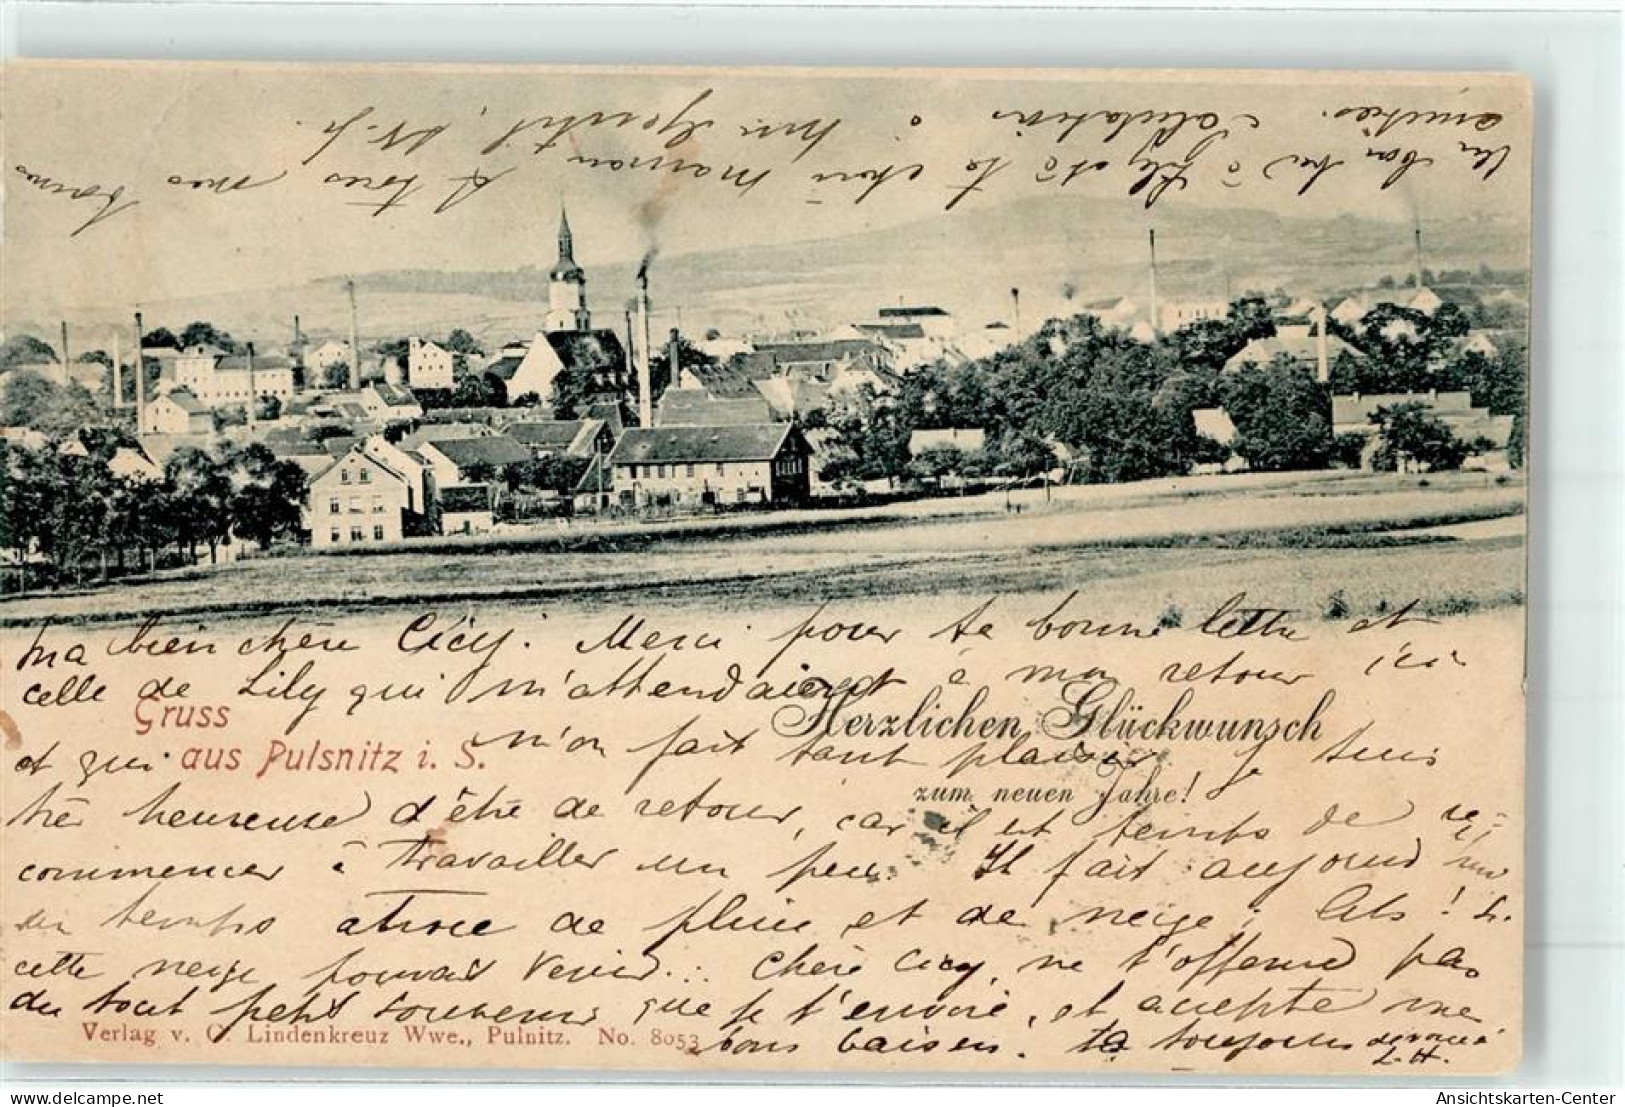 ma bien chère Cicy. Merci pour ta bonne lettre et
celle de Lily qui m'attendaient à mon retour ici
Gruss
aus Pulsnitz i. S.
Herzlichen Glückwunsch
zum neuen Jahre!
et qui m'on fait tant plaisir. Je suis
très heureuse d'être de retour, car il est temps de re=
commencer à travailler un peu. Il fait aujourd'hui
un temps atroce de pluie et de neige;
cette neige pouvait venir... Chère Cicy, ne t'offense pas
du tout petit souvenir que je t'envoie, et accepte me
bons baisers. ta toujours dévouée
L. H.
Verlag v. O. Lindenkreuz Wwe., Pulnitz. No. 8053
Un bon à Lily et à ta chère maman et tous mes
amitiés.
www.oldthing.net
Ansichtskarten-Center